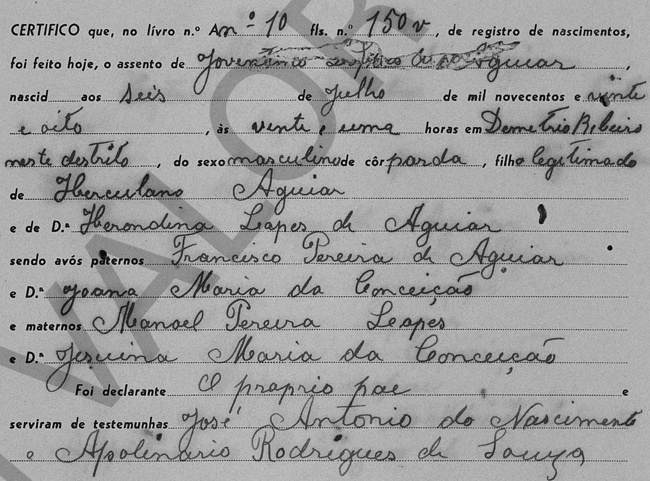 CERTIFICO que, no livro n.º An º 10 fls. n.º 150 v, de registro de nascimentos,
foi feito hoje, o assento de Joventino de Aguiar,
nascid aos seis de Julho de mil novecentos e vinte
e oito, às vente e uma horas em Demetrio Ribeiro
neste destrito, do sexo masculino de côr parda, filho legitimado
de Herculano Aguiar
e de D.ª Herondina Lapes de Aguiar
sendo avós paternos Francisco Pereira de Aguiar
e D.ª Joana Maria da Conceição
e maternos Manoel Pereira Leapes
e D.ª Jesuina Maria da Conceição
Foi declarante O praprio pae e
serviram de testemunhas José Antonio do Nascimento
e Apolinario Rodrigues de Souza
VALOR